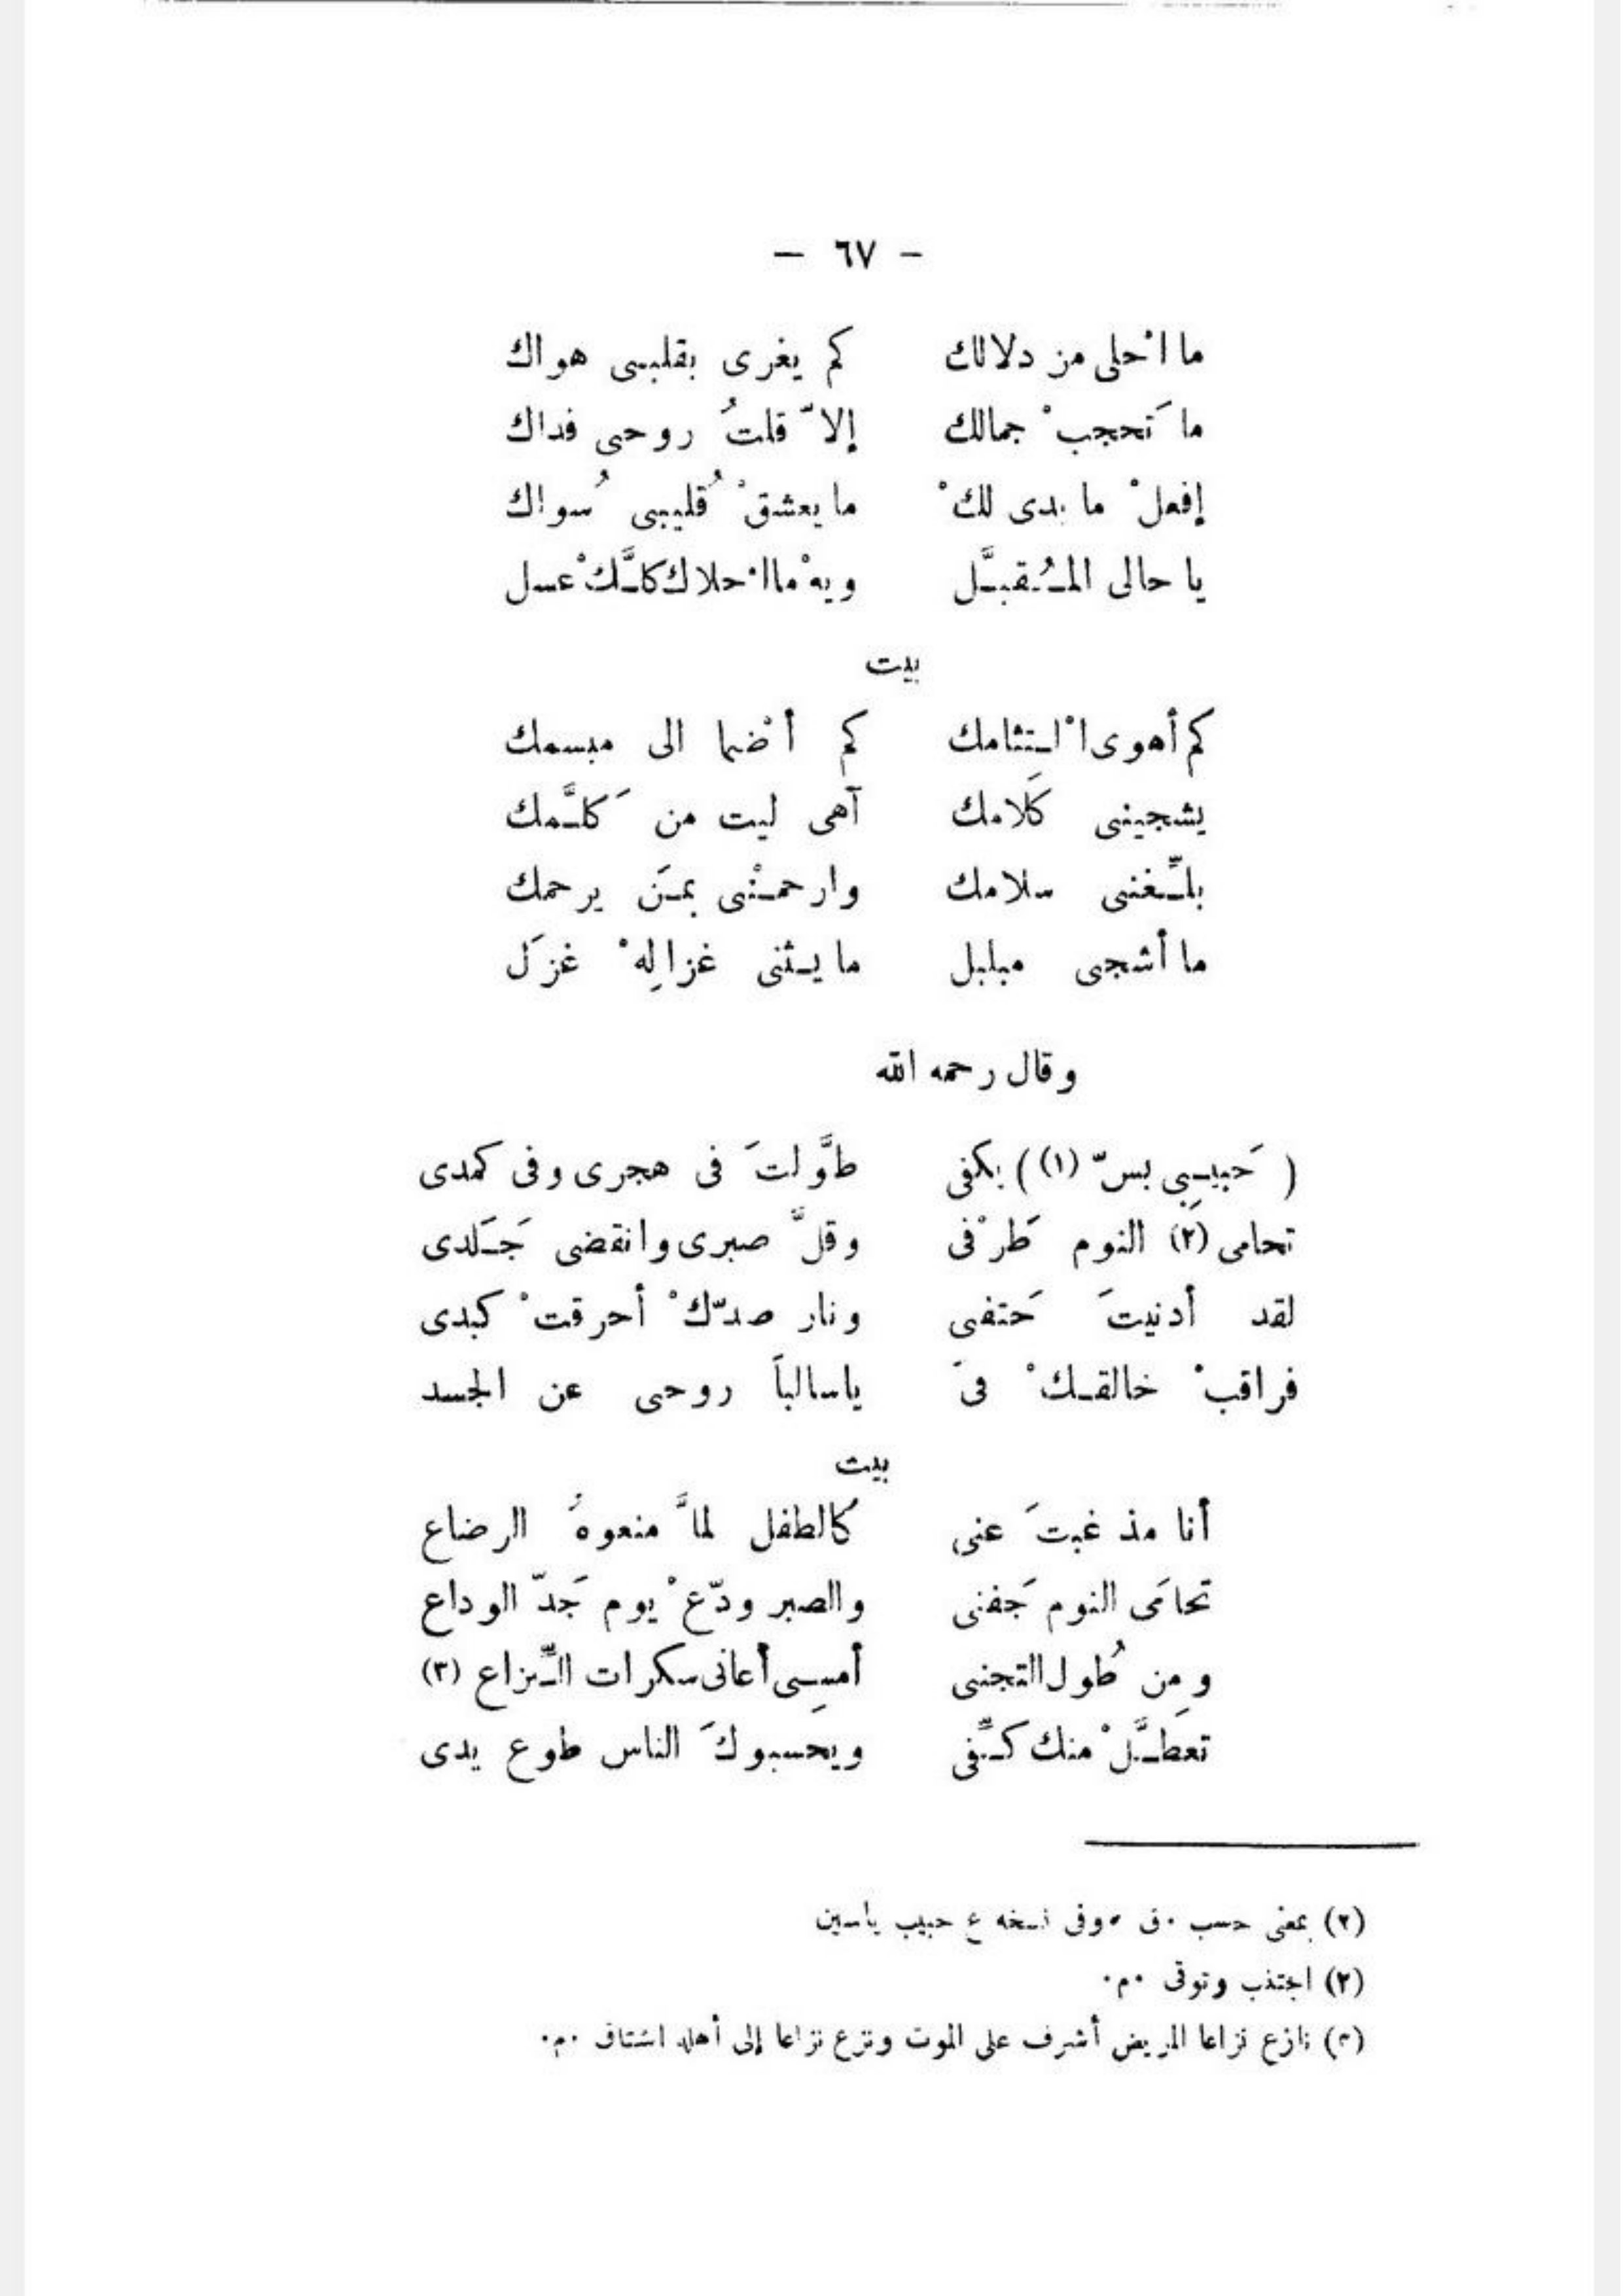 — ٦٧ —
ما احْلى من دلالك كم يغرى بقلبى هواك
ما تَحجبْ جمالك إلاّ قلتُ روحى فداك
إفعلْ ما بدى لكْ ما يعشقْ قُليبى سُواك
يا حالى المُقبَّل ويهْ ما احْلاك كلَّكْ عسل
بيت
كم أهوى الْتثامك كم أضْما الى مبسمك
يشجينى كَلامك آهى ليت من كَلَّمك
بلِّغنى سلامك وارحمْنى بمَن يرحمك
ما أشجى مبلبل ما يثنى غزالِهْ غزَل
وقال رحمه الله
( حَبيبِى بسّ (١) ) يكفى طوَّلتَ فى هجرى وفى كمدى
تحامى (٢) النوم طَرْفى وقلَّ صبرى وانقضى جَلَدى
لقد أدنيتَ حَتفى ونار صدّكْ أحرقتْ كبدى
فراقبْ خالقكْ فىَ ياسالباً روحى عن الجسد
بيت
أنا مذ غبتَ عنى كالطفل لمَّا منعوهُ الرضاع
تحامَى النوم جَفنى والصبر ودّعْ يوم جَدّ الوداع
ومِن طُول التجنى أمسِى أعانى سكرات النِّزاع (٣)
تعطَّلْ منك كفِّى ويحسبوكَ الناس طوع يدى
(٢) بمعنى حسب ٠ق ٠ وفى نسخه ع حبيب ياسين
(٢) اجتذب وتوقى ٠م٠
(٣) نازع نزاعا المريض أشرف على الموت ونزع نزاعا إلى أهله اشتاق ٠م٠